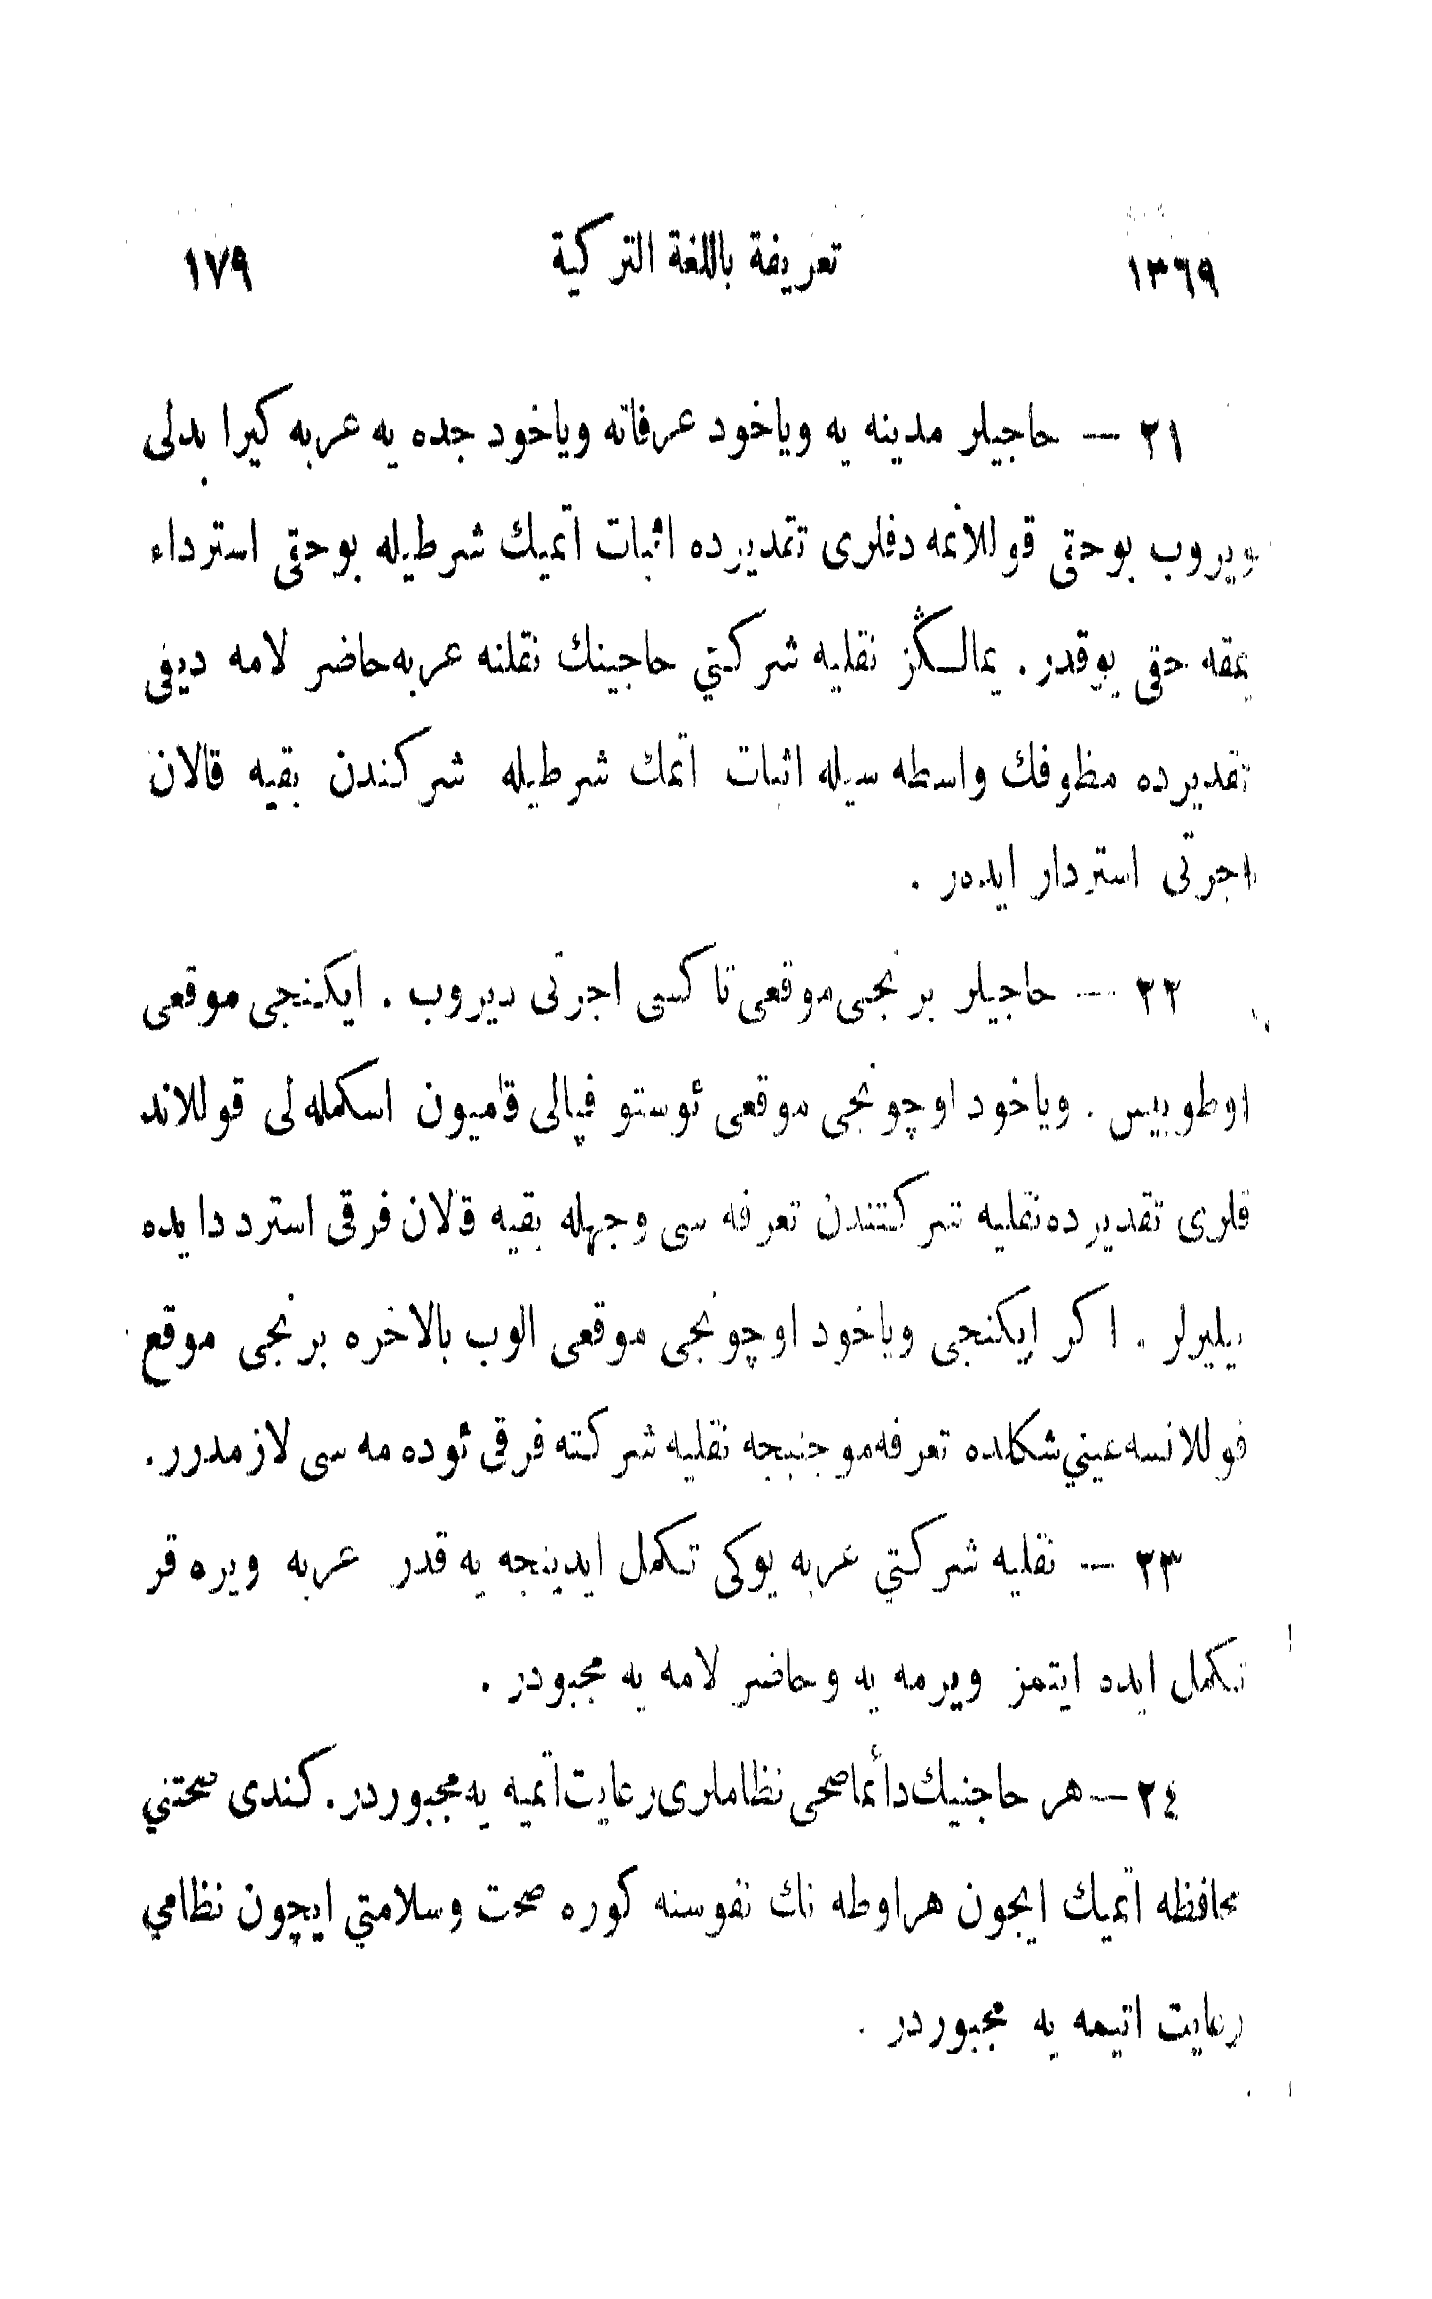 ١٣٦٩ تعريفة باللغة التركية ١٧٩
٢١ — حاجيلر مدينه يه وياخود عرفاته وياخود جده يه عربه كيرا بدلى
ويروب بوحتى قوللانمه دفلرى تقديرده اثبات اتميك شرطيله بوحتى استرداء
يمقه حقى يوقدر . يمالـڭز نقليه شركتي حاجينك نقلنه عربه حاضر لامه ديفى
تقديرده مظوفك واسطه سيله اثبات اتمك شرطيله شركندن بقيه قالان
اجرتى استردار ايدەر .
٢٢ — حاجيلر برنجى موقعى تاكسى اجرتى ديروب . ايكنجى موقعى
اوطوبيس . وياخود اوچونجى موقعى ئوستو قپالى قاميون اسكمله لى قوللاند
قلرى تقديرده نقليه شركتندن تعرفه سى وجهله بقيه قالان فرقى استرد دايده
بيليرلر . اكر ايكنجى وياخود اوچونجى موقعى الوب بالاخره برنجى موقع
قوللانسه عيني شكلده تعرفه موجنبجه نقليه شركته فرقى ئوده مه سى لازمدرر.
٢٣ — نقليه شركتي عربه يوكى تكمل ايدينجه يه قدر عربه ويره قر
تكمل ايده ايتمز ويرمه يه وحاضر لامه يه مجبودر .
٢٤ — هر حاجنيك دأئما صحى نظاملرى رعايت اتميه يه مجبوردر. كندى صحتني
محافظه اتميك ايجون هراوطه نك نفوسنه كوره صحت وسلامتي ايچون نظامي
رعايت اتيمه يه مجبوردر .